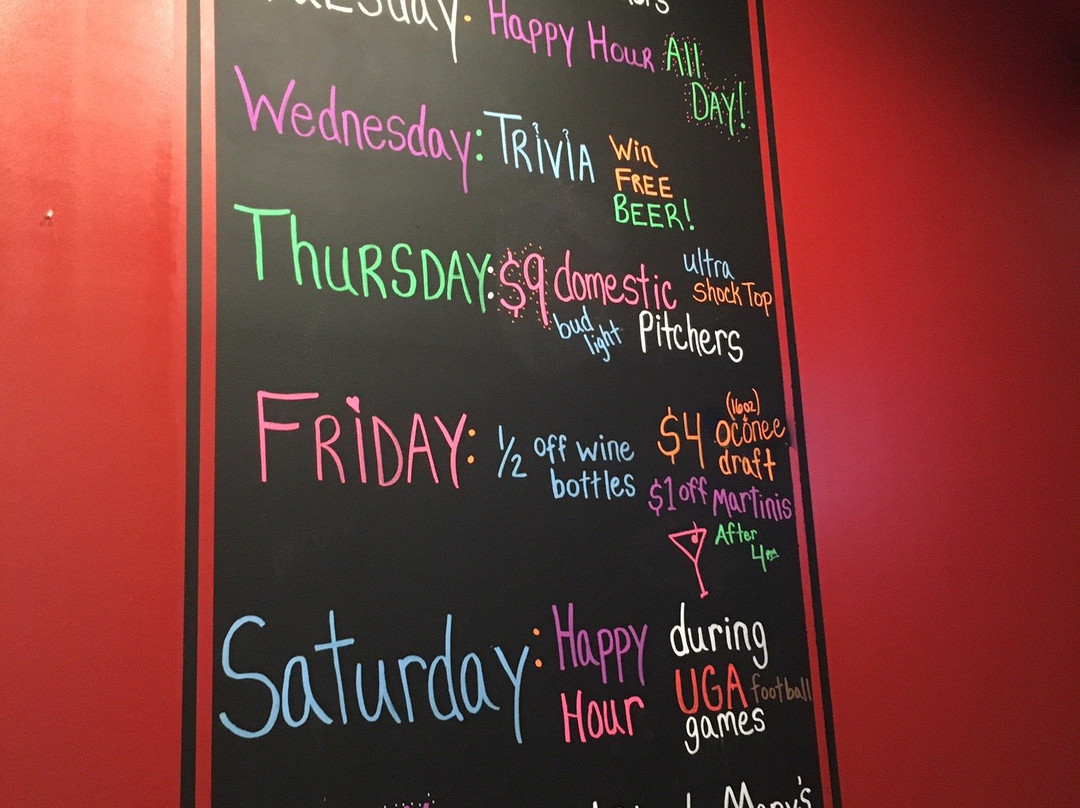 Tuesday: Happy Hour All
DAY!
Wednesday: TRIVIA Win
FREE
BEER!
THURSDAY: $9 domestic ultra
Shock Top
bud light Pitchers
FRiDAY: 1/2 off wine bottles
$4 (16oz) oconee draft
$1 off Martinis
After 4pm
Saturday: Happy Hour
during
UGA football
games
Mary's